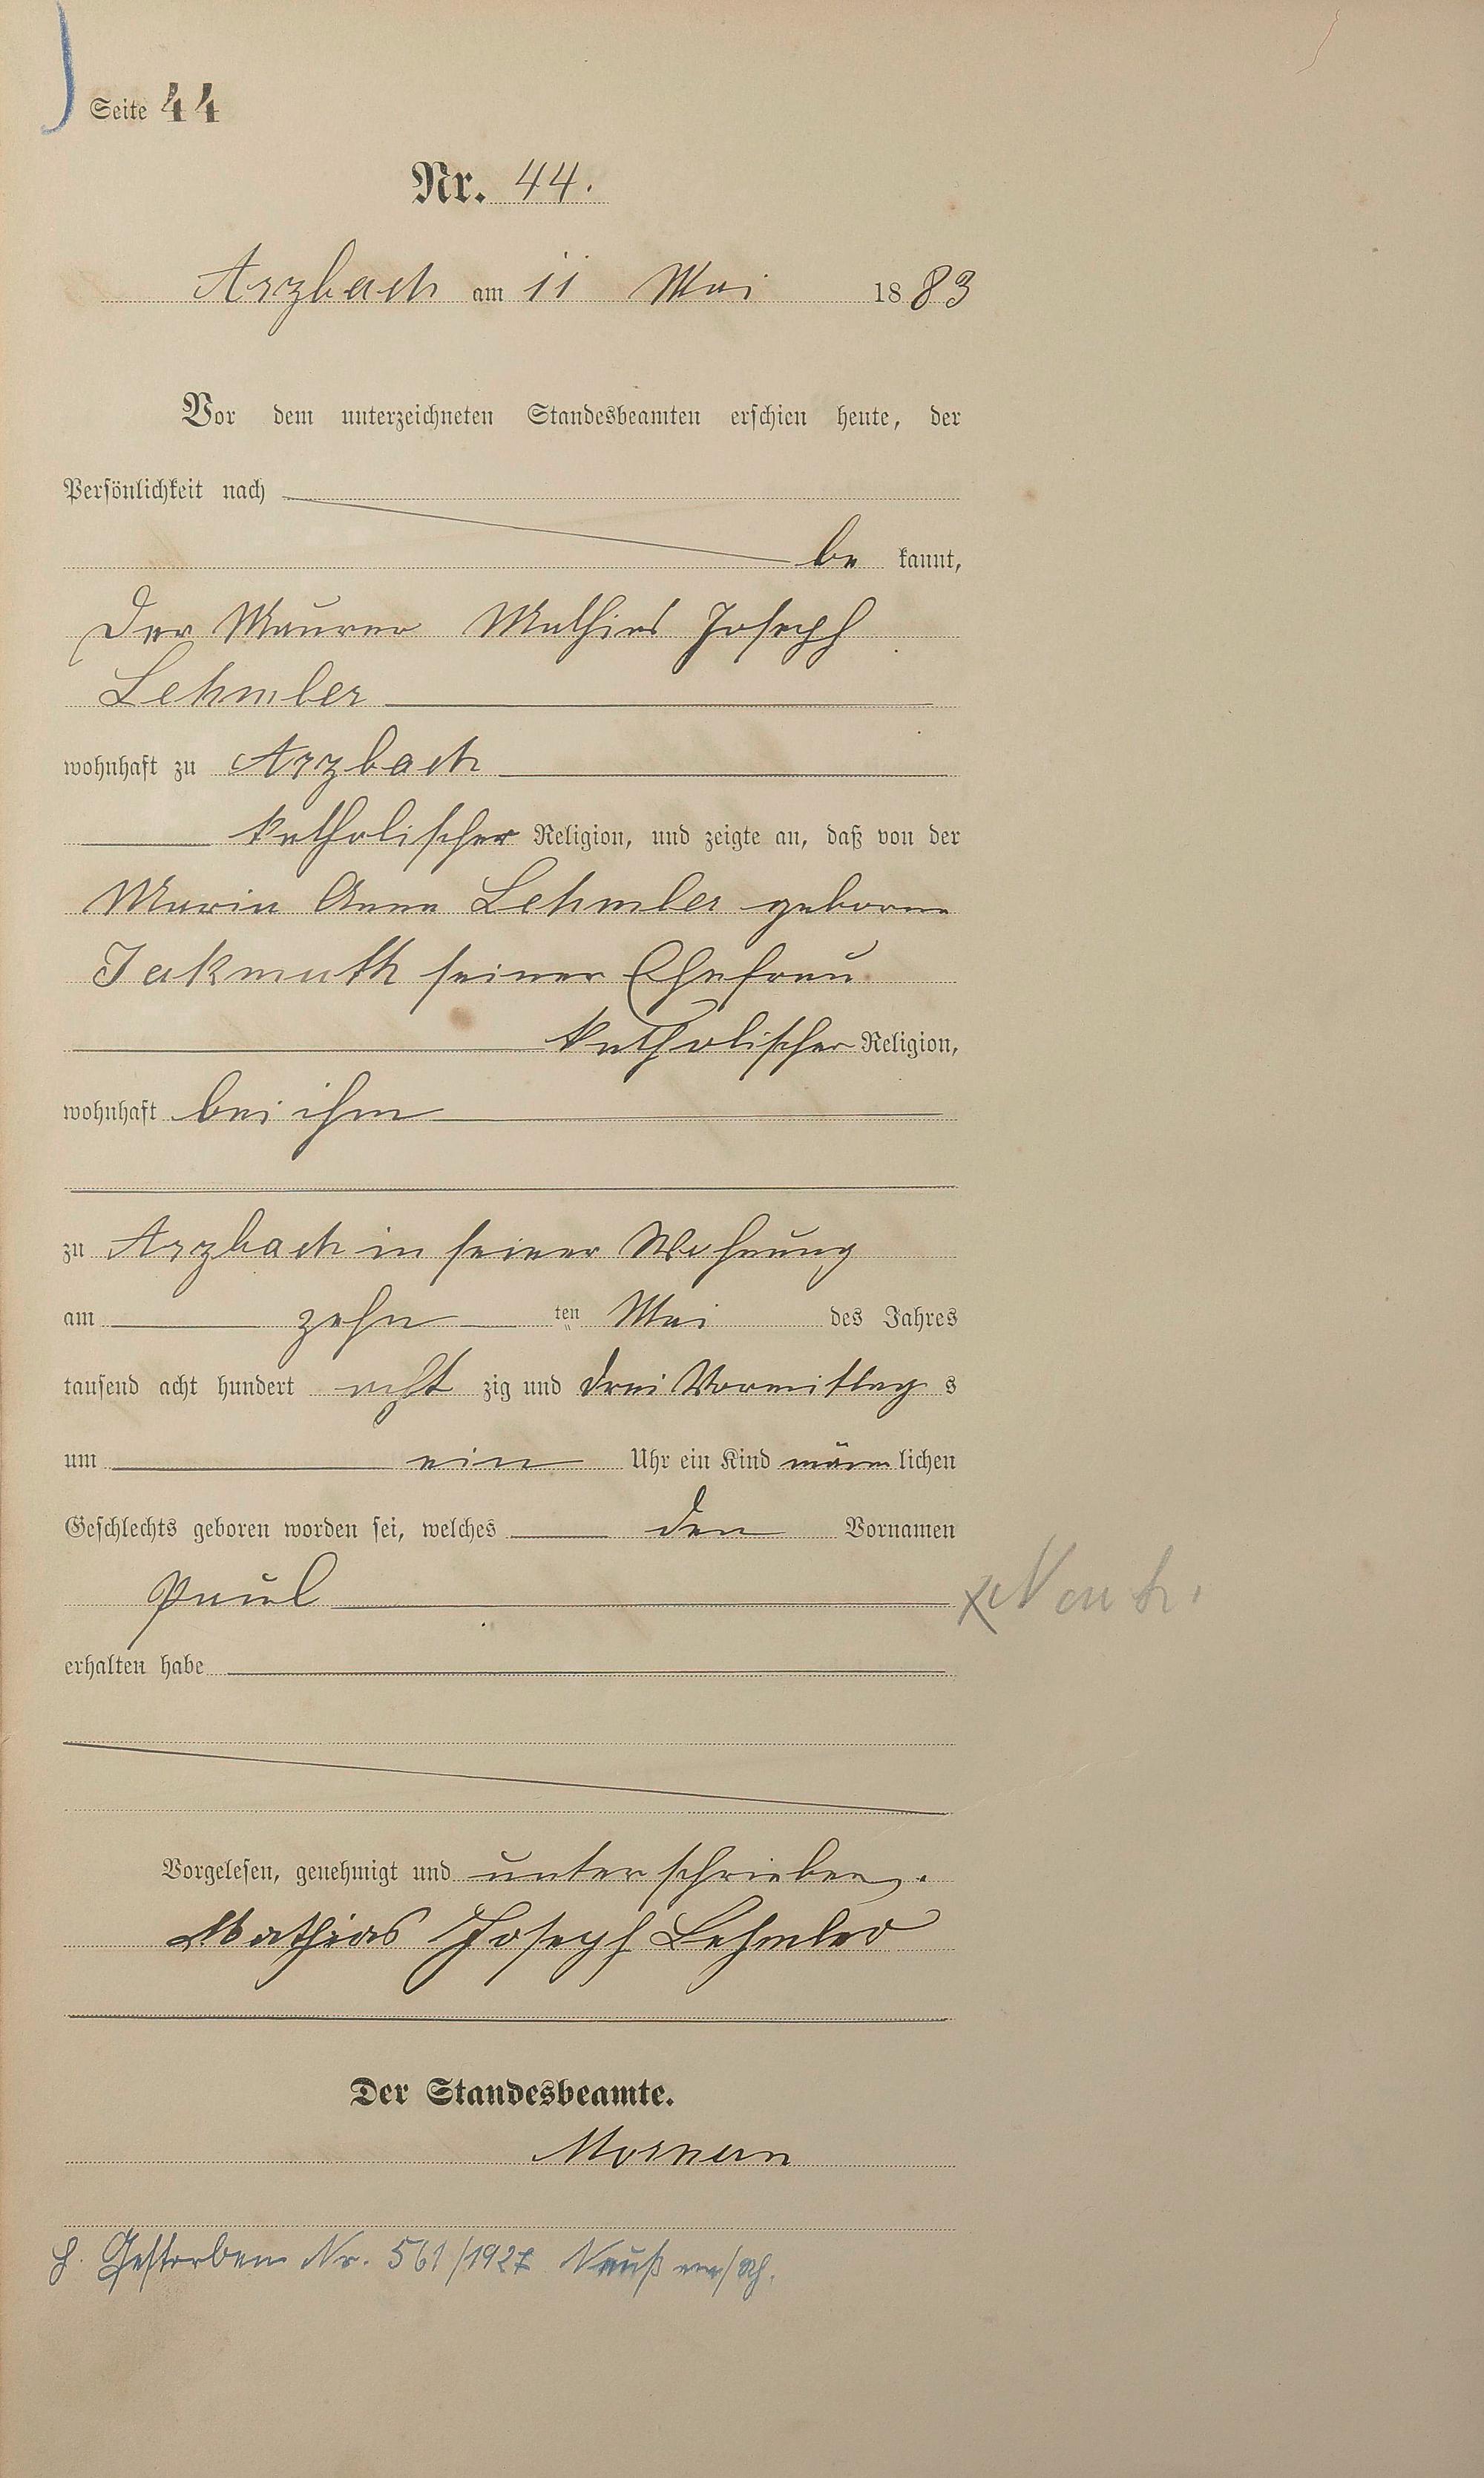 Seite 44
Nr. 44.
Arzbach am 11 Mai 1883
Vor dem unterzeichneten Standesbeamten erschien heute, der
Persönlichkeit nach
be kannt,
der Maurer Mathias Joseph
Lehmler
wohnhaft zu Arzbach
katholischer Religion, und zeigte an, daß von der
Maria Anna Lehmler geborne
Jakmuth seiner Ehefrau
katholischer Religion,
wohnhaft bei ihm
zu Arzbach in seiner Wohnung
am zehn ten Mai des Jahres
tausend acht hundert acht zig und drei Vormittag s
um ein Uhr ein Kind männlichen
Geschlechts geboren worden sei, welches den Vornamen
Paul
erhalten habe
Vorgelesen, genehmigt und unterschrieben.
Mathias Joseph Lehmler
Der Standesbeamte.
Gestorben Nr. 561/1927 Neuß /Rh.